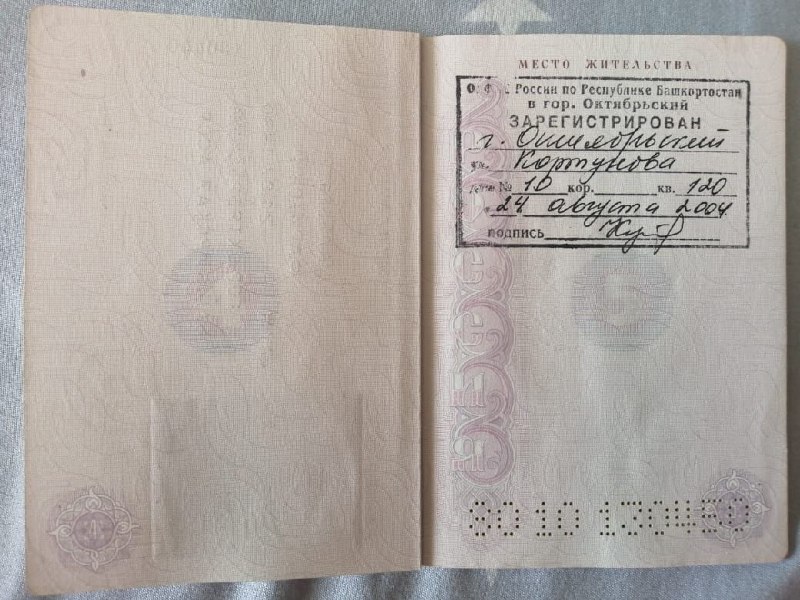 МЕСТО ЖИТЕЛЬСТВА
России по Республике Башкортостан
в гор. Октябрьский
ЗАРЕГИСТРИРОВАН
г. Октябрьский
ул. Кортунова
№ 10 кор. кв. 120
24 августа 2004
подпись
80 10 130450